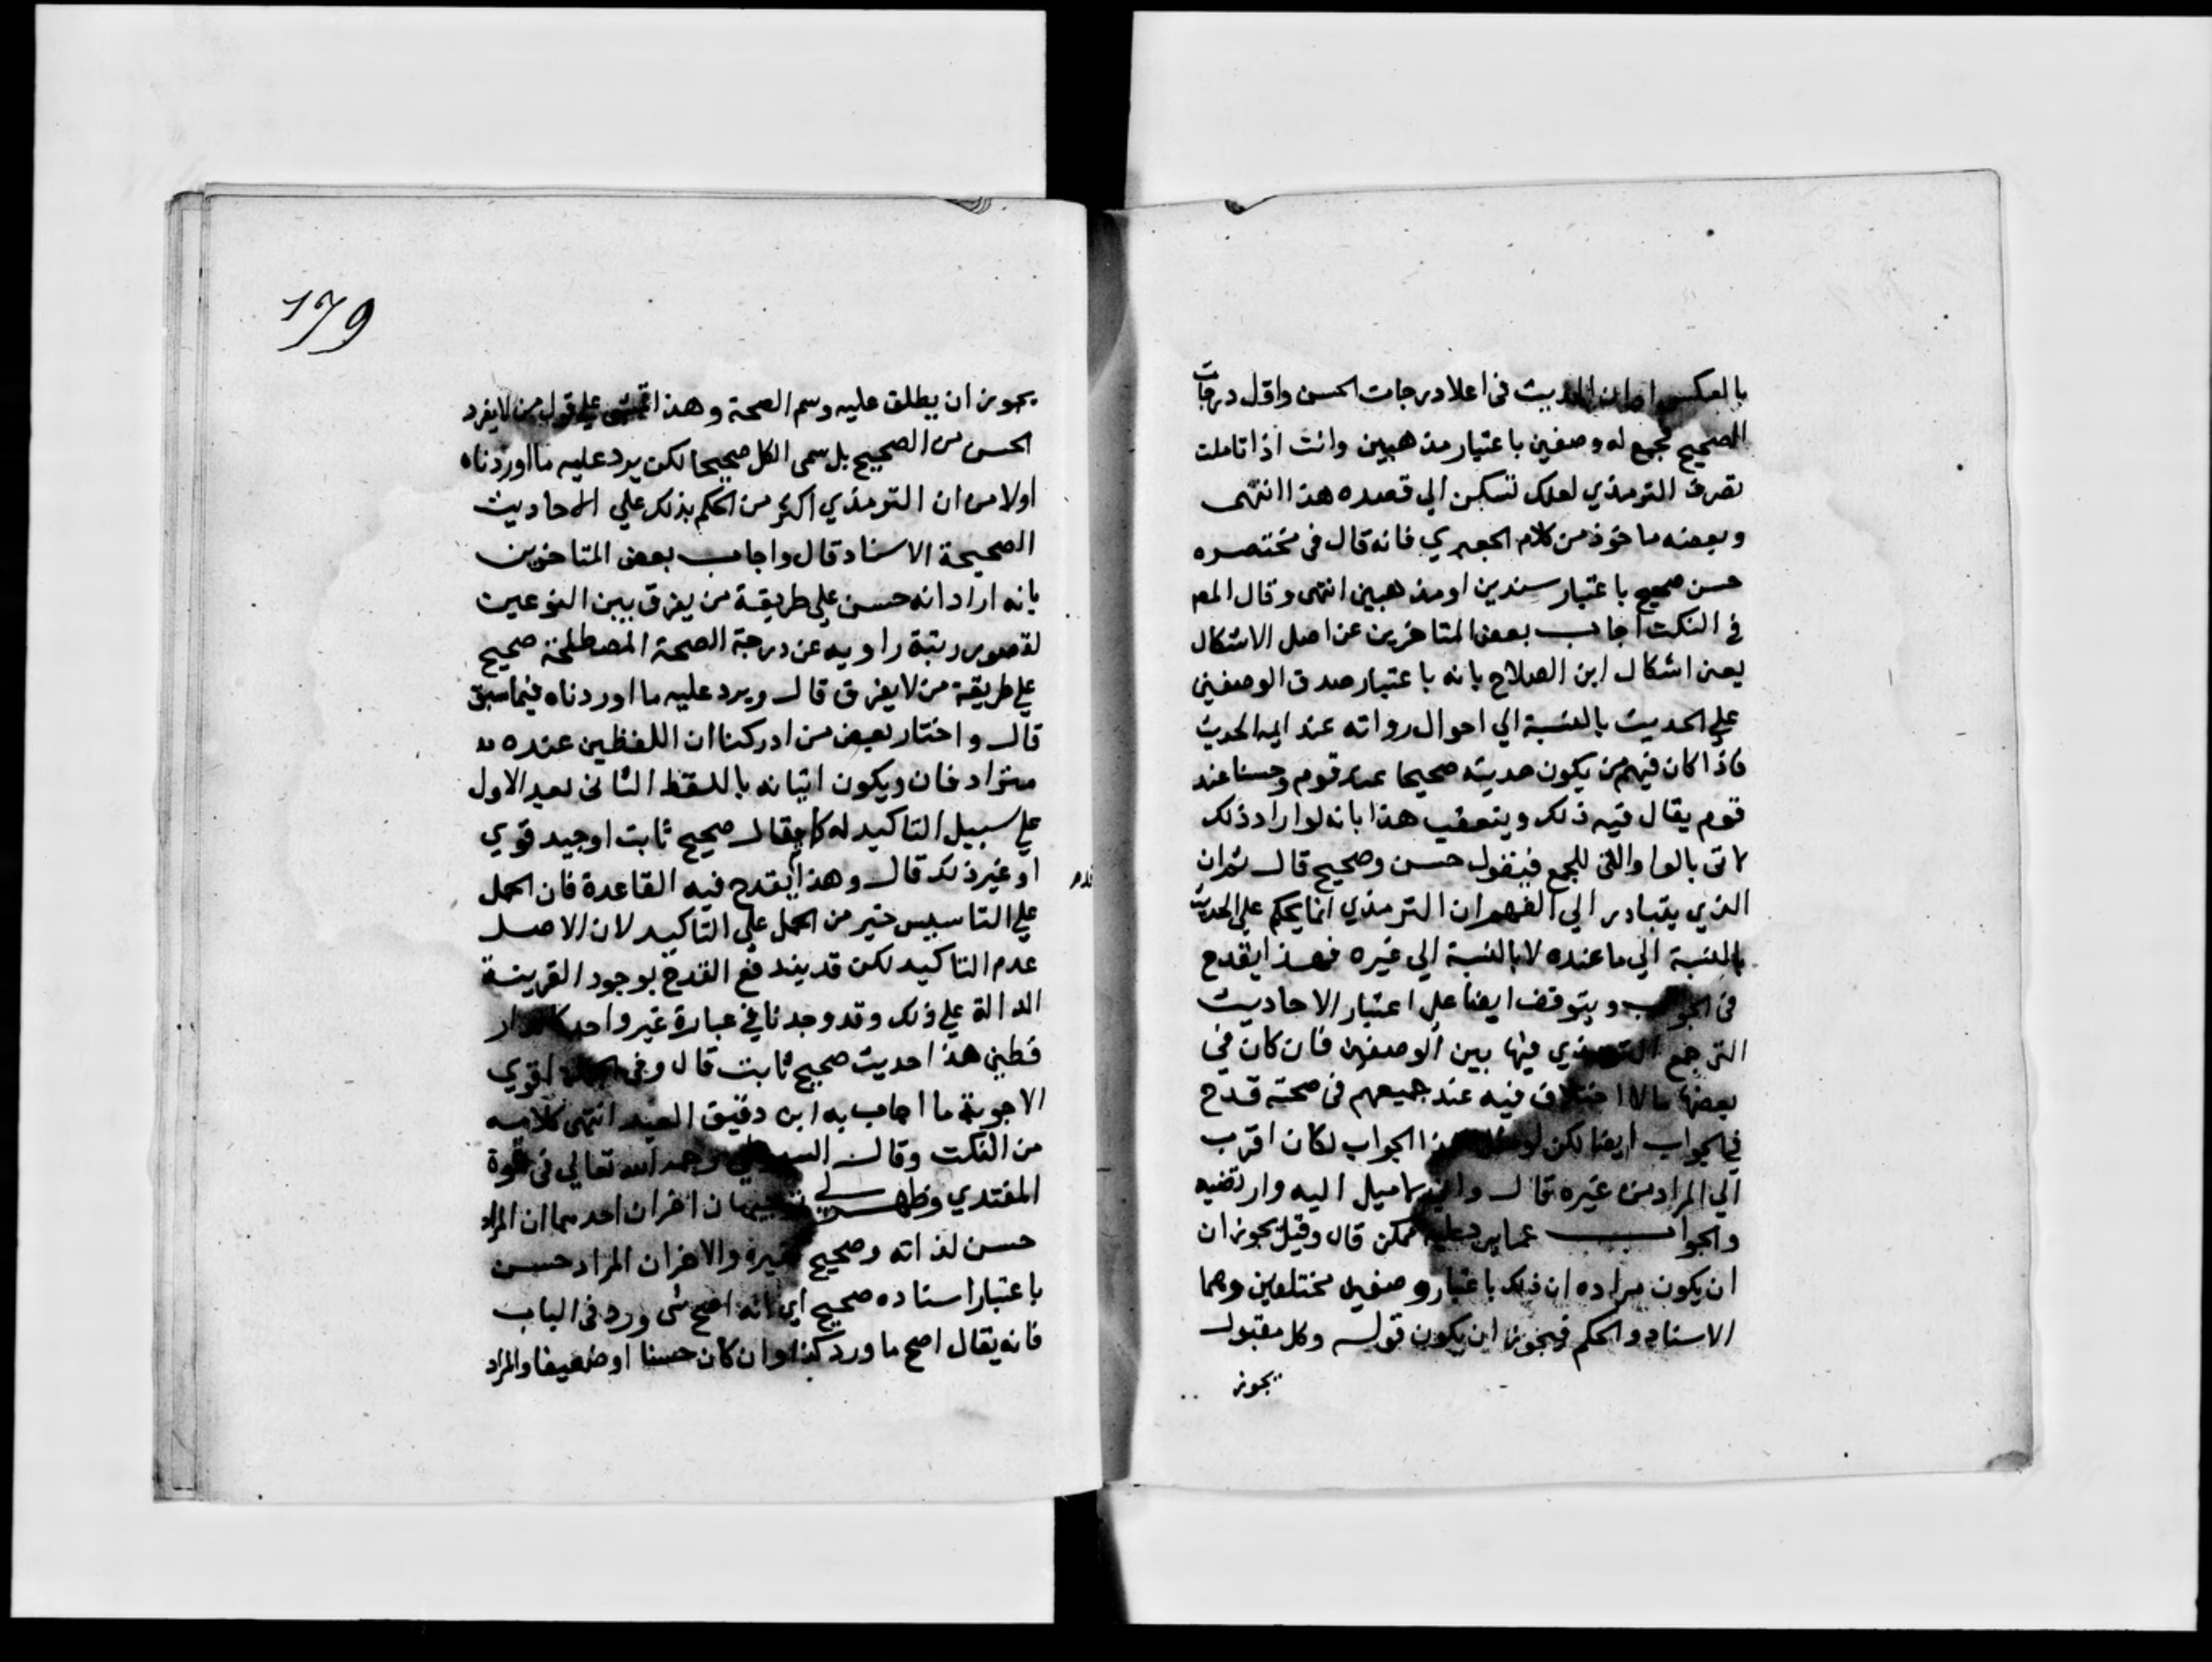 بالعكس او ان الحديث فى اعلا درجات الحسن واقل درجات
الصحيح فجمع له وصفين باعتبار مذهبين وانت اذا تاملت
تصرف الترمذي لعلك تسكن الي قصده هذا انتهى
وبعضه ماخوذ من كلام الجعبري فانه قال فى مختصره
حسن صحيح باعتبار سندين او مذهبين انتهى وقال المص
في النكت اجاب بعض المتاخرين عن اصل الاشكال
يعنى اشكال ابن الصلاح بانه باعتبار صدق الوصفين
علي الحديث بالنسبة الي احوال رواته عند ايمه الحديث
فاذا كان فيهم من يكون حديثه صحيحا عند قوم وحسنا عند
قوم يقال فيه ذلك ويتعقب هذا بانه لو اراد ذلك
لاتى بالواو التى للجمع فيقول حسن وصحيح قال ثم ان
الذي يتبادر الي الفهم ان الترمذي انما يحكم علي الحديث
بالنسبة الي ما عنده لا بالنسبة الي غيره فهذا يقدح
فى الجواب ويتوقف ايضا علي اعتبار الاحاديث
التى جمع الترمذي فيها بين الوصفين فان كان في
بعضها مالا اختلاف فيه عند جميعهم فى صحته قدح
في الجواب ايضا لكن لو سلم هذا الجواب لكان اقرب
الي المراد من غيره قال واني لاميل اليه وارتضيه
والجواب عما يرد عليه ممكن قال وقيل يجوز ان
ان يكون مراده ان ذلك باعتبار وصفين مختلفين وهما
الاسناد والحكم فيجوز ان يكون قوله وكل مقبول
يجوز
179
يجوز ان يطلق عليه وسم الصحة وهذا تمشى علي قول من لا يفرد
الحسن من الصحيح بل سمى الكل صحيحا لكن يرد عليه ما اوردناه
اولا من ان الترمذي اكثر من الحكم بذلك علي الاحاديث
الصحيحة الاسناد قال واجاب بعض المتاخرين
بانه اراد انه حسن علي طريقة من يفرق بين النوعين
لقصور رتبة راويه عن درجة الصحة المصطلحة صحيح
علي طريقة من لا يفرق قال ويرد عليه ما اوردناه فيما سبق
قال واختار بعض من ادركنا ان اللفظين عنده
مترادفان ويكون اتيانه باللفظ الثانى بعد الاول
علي سبيل التاكيد له كما يقال صحيح ثابت او جيد قوي
او غير ذلك قال وهذا يقدح فيه القاعدة فان الحمل
علي التاسيس خير من الحمل علي التاكيد لان الاصل
عدم التاكيد لكن قد يندفع القدح بوجود القرينة
الدالة علي ذلك وقد وجدنا في عبارة غير واحد كالدار
قطني هذا حديث صحيح ثابت قال وفى الجملة اقوي
الاجوبة ما اجاب به ابن دقيق العيد انتهى كلامه
من النكت وقال السيوطي رحمه الله تعالي فى قوة
المغتدي وظهر لي توجيهان اخران احدهما ان المراد
حسن لذاته وصحيح لغيره والاخر ان المراد حسن
باعتبار اسناده صحيح اي انه اصح شى ورد فى الباب
فانه يقال اصح ما ورد كذا وان كان حسنا او ضعيفا والمراد